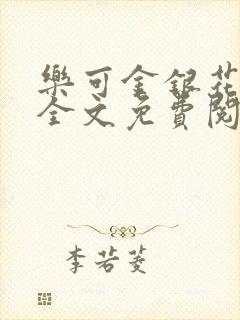 樂可金銀花
全文免費閱
李若菱